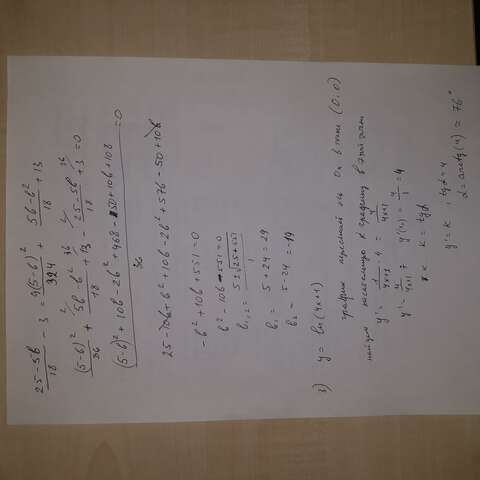 (25-5b)/18 - 3 = 9(5-b)²/324 + (5b-b²)/18 + 13
(5-b)²/36 + (5b-b²)/18 + 13 - (25-5b)/18 + 3 = 0
((5-b)² + 10b - 2b² + 468 - 50 + 10b + 108)/36 = 0
25 - 10b + b² + 10b - 2b² + 576 - 50 + 10b
-b² + 10b + 551 = 0
b² - 10b - 551 = 0
b₁,₂ = (5 ± √(25+551))/1
b₁ = 5+24 = 29
b₂ = 5-24 = -19
3) y = ln(4x+1)
график пересекает ось Ox в точке (0,0)
найдем касательную к графику в этой точке
y' = 1/(4x+1) · 4 = 4/(4x+1)
y' = 4/(4x+1) ; y'(0) = 4/1 = 4
т.к. k = tgα
y' = k , tgα = 4
α = arctg(4) ≈ 76°